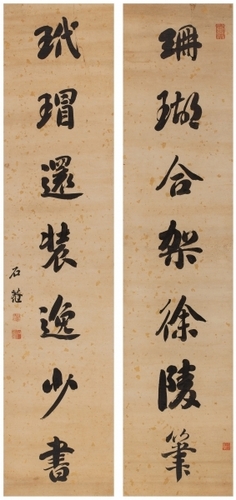 珊瑚合架徐陵筆
玳瑁還裝逸少書
石菴